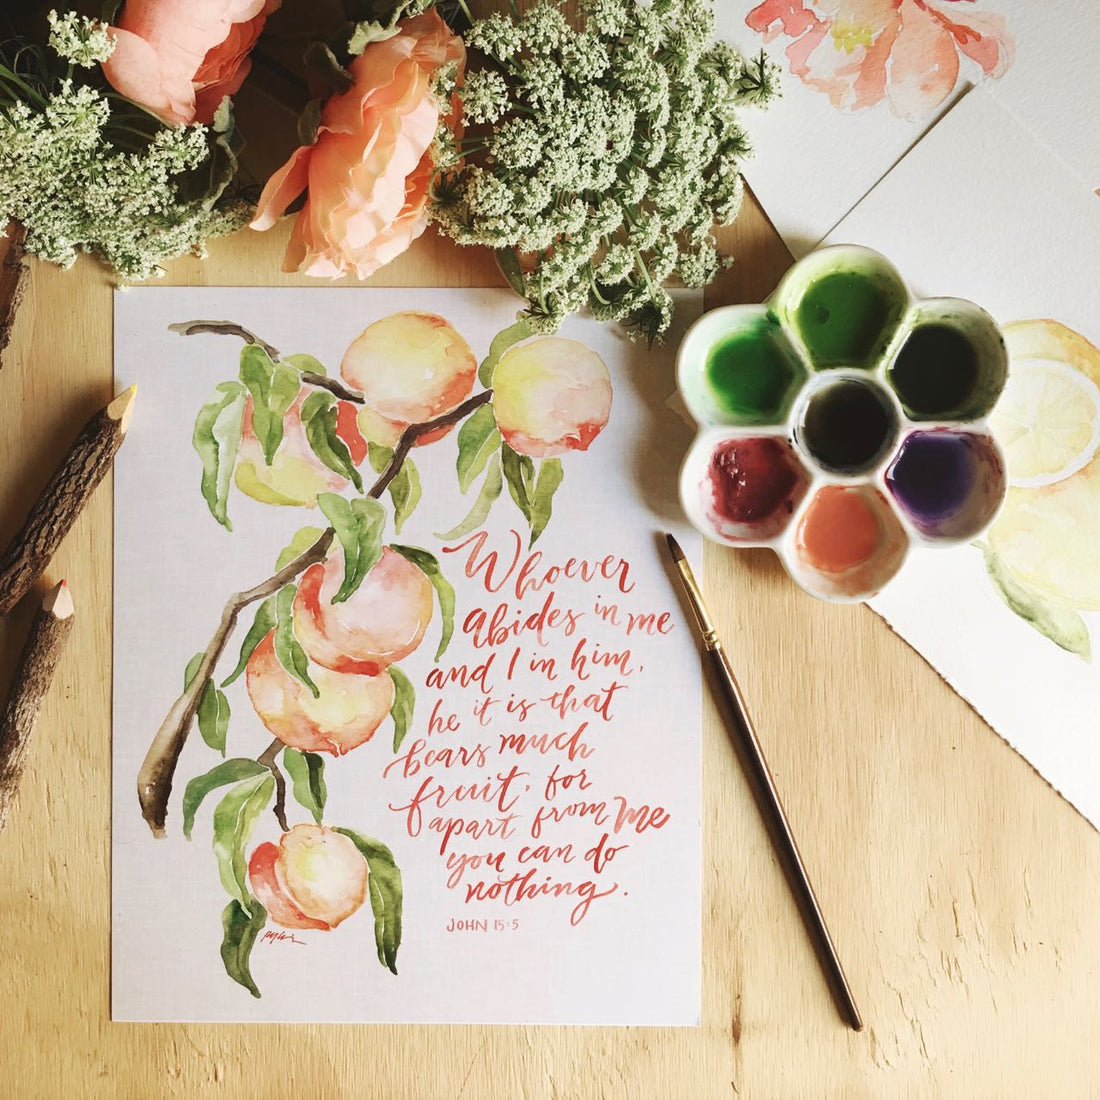 Whoever
abides in me
and I in him,
he it is that
bears much
fruit, for
apart from me
you can do
nothing.
JOHN 15:5